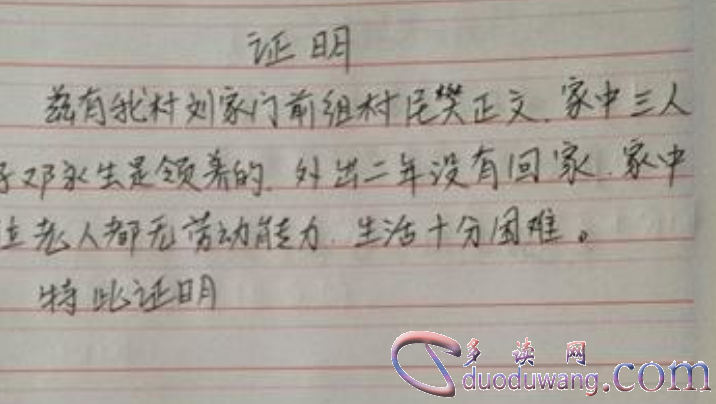 证明
兹有我村刘家门前组村民樊正文.家中三人
子邓永生是领养的.外出二年没有回家.家中
位老人都无劳动能力.生活十分困难。
特此证明
多读网
duoduwang.com